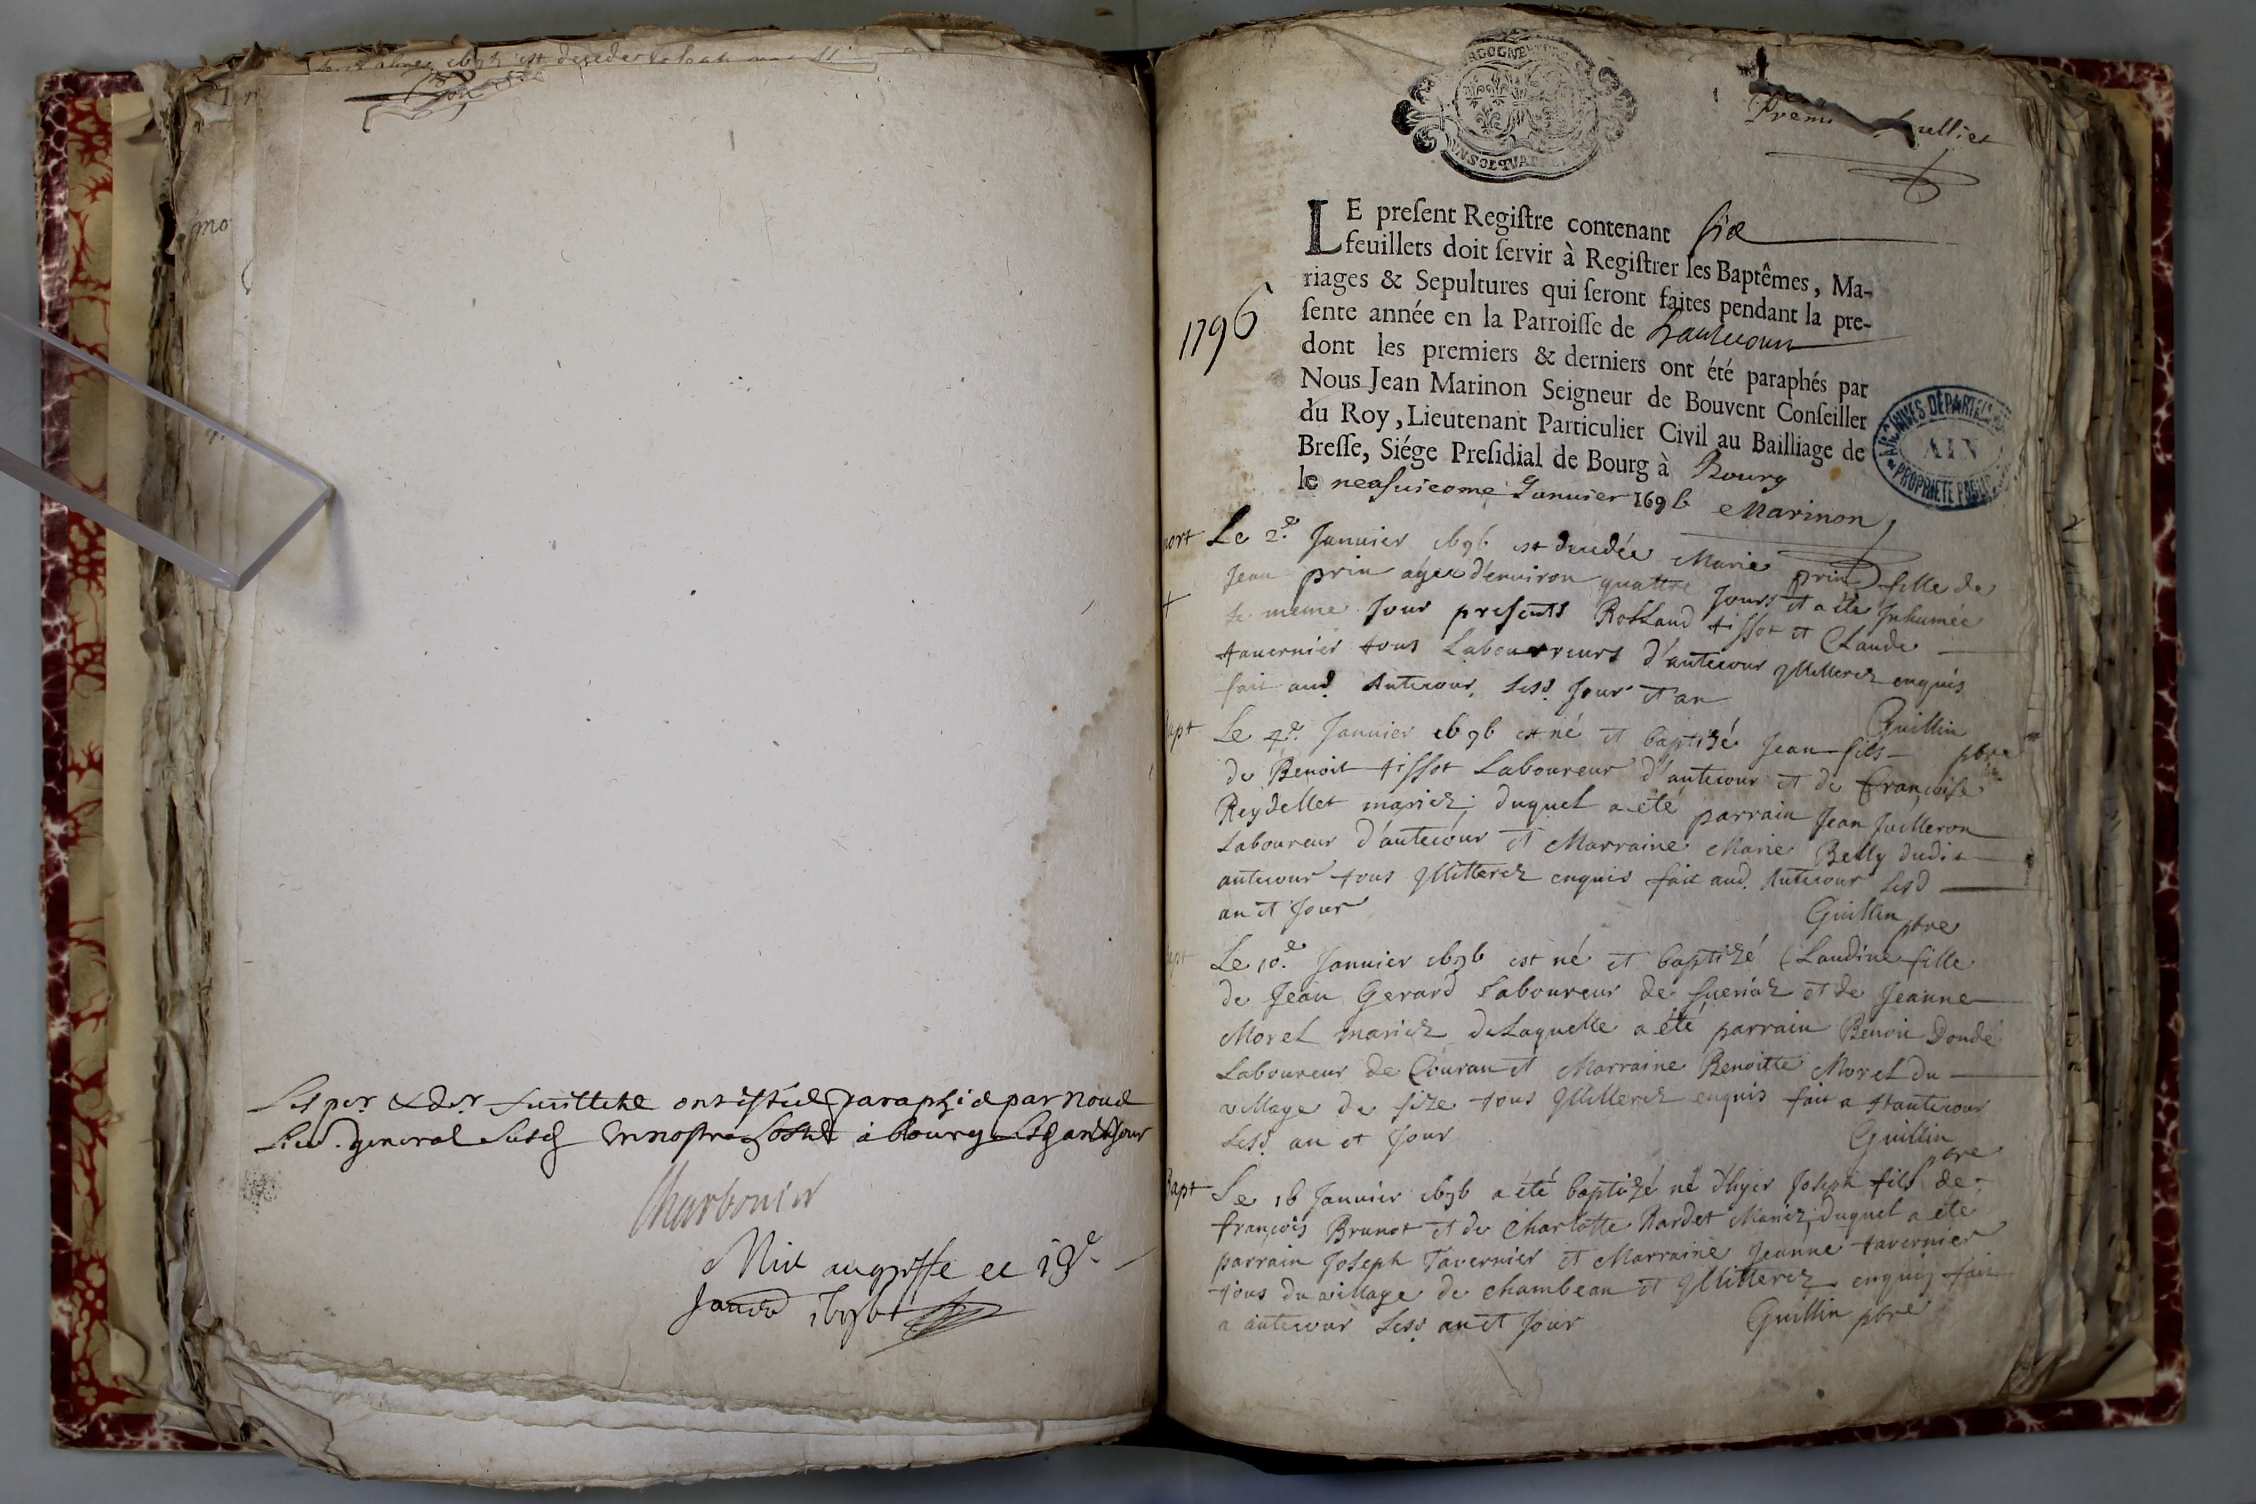 Les per. & der. feuillets ont estéz paraphéz par nous
Lieut. general susd. en nostre hostel à bourg lesd. an & jour
Charbonier
Mis au greffe ce 19e
Janvr 1696
Premier feuillet
LE preſent Regiſtre contenant six
feuillets doit ſervir à Regiſtrer les Baptêmes, Ma-
riages & Sepultures qui ſeront faites pendant la pre-
ſente année en la Parroiſſe de hautecour
1796
dont les premiers & derniers ont été paraphés par
Nous Jean Marinon Seigneur de Bouvent Conſeiller
du Roy, Lieutenant Particulier Civil au Bailliage de
Breſſe, Siége Preſidial de Bourg à Bourg
le Janvier 1696 Marinon
ARCHIVES DÉPARTEM
AIN
PROPRIÉTÉ PUBLIQUE
mort Le 2e. Janvier 1696 est decedée Marie prin fille de
Jean prin agée d'environ quattre Jours et a été Inhumée
le meme Jour presents Rolland tissot et Claude
tavernier tous Laboureurs d'autecour Illitterez enquis
fait aud. Autecour Lesd. Jour et an
Guillin pbre
bapt Le 4e. Janvier 1696 est né et baptizé Jean fils
de Benoit tissot Laboureur d'autecour et de Françoise
Reydellet mariez; duquel a été parrain Jean Juilleron
Laboureur d'autecour et Marraine Marie Belly dudit
autecour tous Illitterez enquis fait aud. Autecour Lesd
an et Jour
Guillin pbre
bapt Le 10e. Janvier 1696 est né et baptizé Claudine fille
de Jean Gerard Laboureur de et de Jeanne
Morel mariez de Laquelle a été parrain Benoit Donde
Laboureur de Couran et Marraine Benoitte Morel du
village de size tous Illitterez enquis fait a hautecour
Lesd. an et Jour
Guillin pbre
Bapt Le 16 Janvier 1696 a été baptizé né d'hyer Joseph fils de
françois Brunot et de Charlotte Rardet Mariez; duquel a été
parrain Joseph Tavernier et Marraine Jeanne tavernier
tous du village de chambeau et Illitterez enquis fait
a autecour Lesd. an et Jour
Guillin pbre